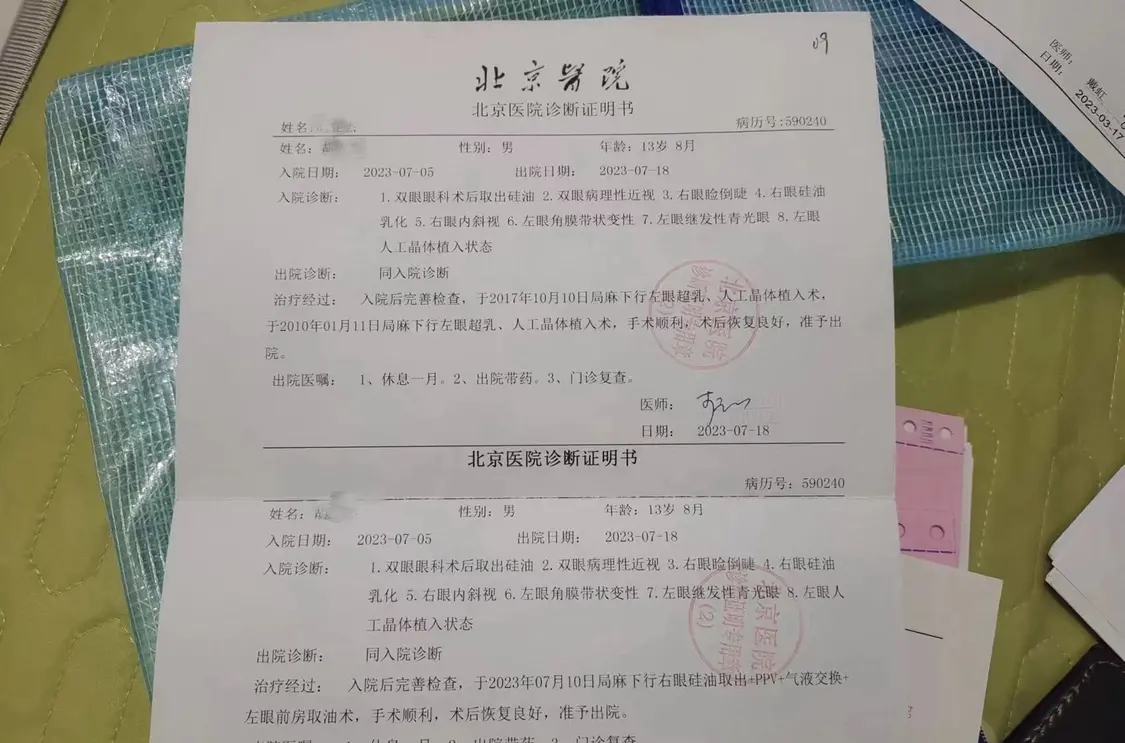 09
北京醫院
北京医院诊断证明书
姓名:
病历号:590240
姓名: 性别: 男 年龄: 13岁 8月
入院日期: 2023-07-05 出院日期: 2023-07-18
入院诊断: 1.双眼眼科术后取出硅油 2.双眼病理性近视 3.右眼睑倒睫 4.右眼硅油
乳化 5.右眼内斜视 6.左眼角膜带状变性 7.左眼继发性青光眼 8.左眼
人工晶体植入状态
出院诊断: 同入院诊断
治疗经过: 入院后完善检查，于2017年10月10日局麻下行左眼超乳、人工晶体植入术，
于2010年01月11日局麻下行左眼超乳、人工晶体植入术，手术顺利，术后恢复良好，准予出
院。
出院医嘱: 1、休息一月。2、出院带药。3、门诊复查。
医师:
日期: 2023-07-18
北京医院
诊断证明专用章
(2)
北京医院诊断证明书
病历号: 590240
姓名: 性别: 男 年龄: 13岁 8月
入院日期: 2023-07-05 出院日期: 2023-07-18
入院诊断: 1.双眼眼科术后取出硅油 2.双眼病理性近视 3.右眼睑倒睫 4.右眼硅油
乳化 5.右眼内斜视 6.左眼角膜带状变性 7.左眼继发性青光眼 8.左眼人
工晶体植入状态
出院诊断: 同入院诊断
治疗经过: 入院后完善检查，于2023年07月10日局麻下行右眼硅油取出+PPV+气液交换+
左眼前房取油术，手术顺利，术后恢复良好，准予出院。
出院医嘱: 1、休息一月。2、出院带药。3、门诊复查。
北京医院
诊断证明专用章
(2)
医师: 戴虹
日期: 2023-03-17